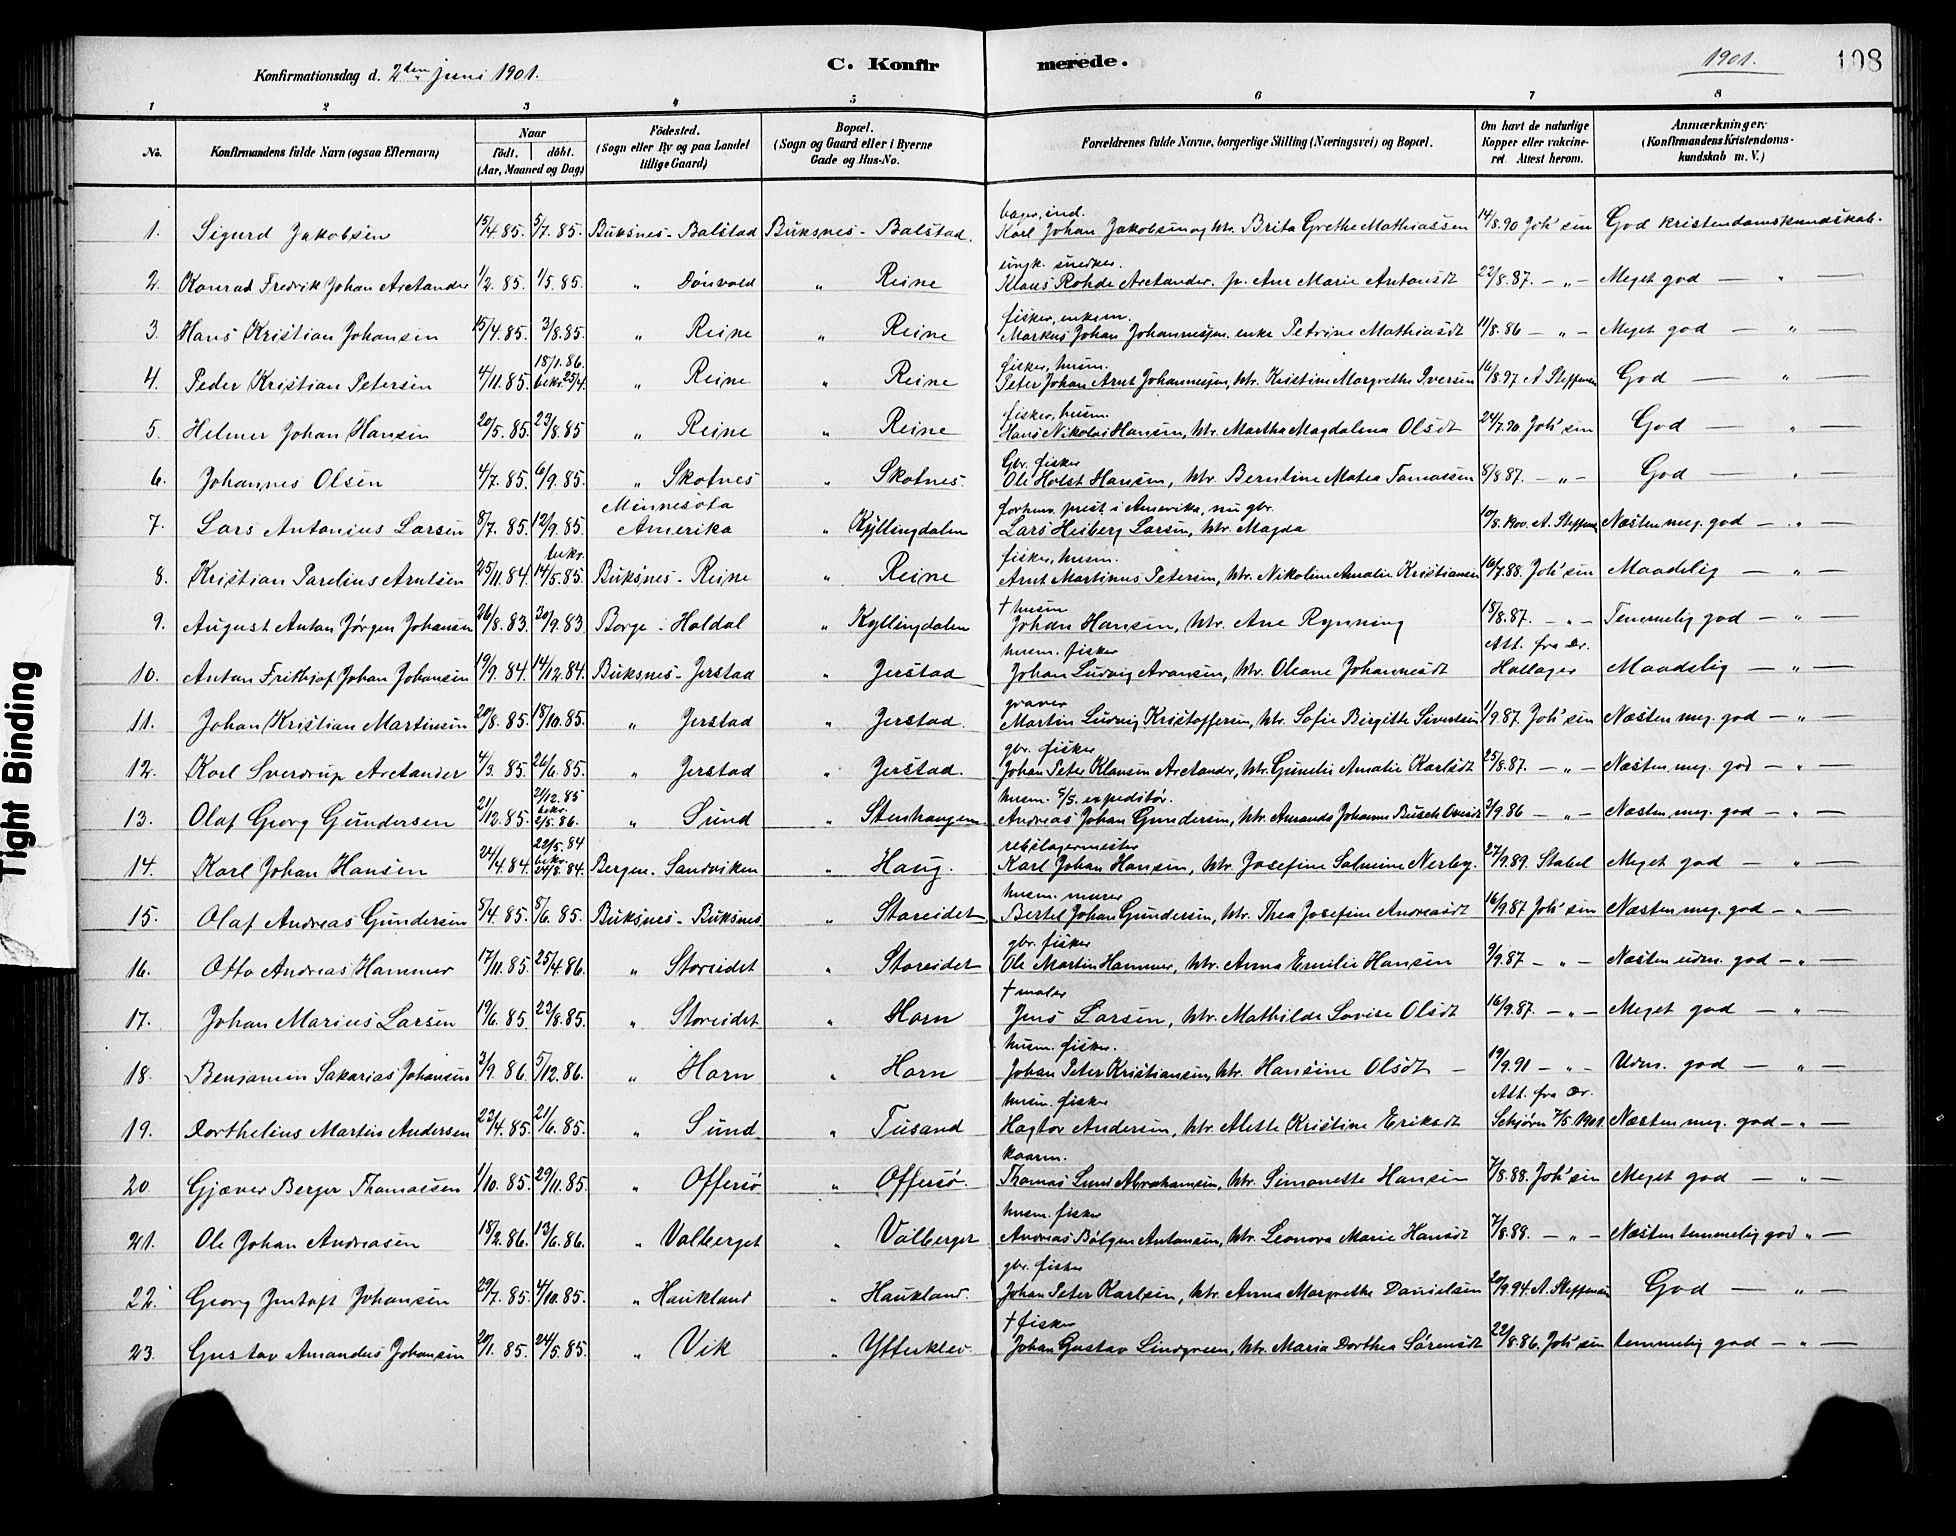 Konfirmationsdag d. 2den juni 1901. C. Konfirmerede. 1901. 108
1 2 3 4 5 6 7 8
No. Konfirmandens fulde Navn (ogsaa Efternavn) Naar födt. döbt. (Aar, Maaned og Dag) Födested. (Sogn eller By og paa Landet tillige Gaard) Bopæl. (Sogn og Gaard eller i Byerne Gade og Hus-No. Forældrenes fulde Navne, borgerlige Stilling (Næringsvei) og Bopæl. Om havt de naturlige Kopper eller vakcineret. Attest herom. Anmærkninger. (Konfirmandens Kristendomskundskab m. V.)
1. Sigurd Jakobsen 15/4. 85. 5/7. 85. Buksnes - Balstad Buksnes - Balstad. Karl Johan Jakobsen og htr. Brita Grethe Mathiassen 14/8. 90 Joh'sen God kristendomskundskab.
ungk. snedker.
2. Konrad Fredrik Johan Arctander 1/2. 85. 1/5. 85. „ „ Reine Klaus Rohde Arctander. p. Ane Marie Antonsdt 22/8. 87. - „ - Meget god - „ -
fisker, enkem.
3. Hans Kristian Johansen 15/4. 85. 3/8. 85. „ Reine „ Reine Markus Johan Johannessen. enke Petrine Mathiasdt 11/8. 86 - „ - Meget god - „ -
fisker, husm.
4. Peder Kristian Petersen 4/11. 85. 18/1. 86. bekr. 25/4. „ Reine „ Reine Peter Johan Arnt Johannessen, htr. Kristine Margrethe Iversen 16/8. 97. A. Steffensen God - „ -
fisker, husm.
5. Helmer Johan Hansen 20/5. 85. 23/8. 85 „ Reine „ Reine Hans Nikolai Hansen, htr. Martha Magdalena Olsdt 24/7. 90. Joh'sen God - „ -
Gbr. fisker
6. Johannes Olsen 4/7. 85. 6/9. 85. „ Skotnes „ Skotnes Ole Holst Hansen, htr. Berntine Matea Tomassen 8/8 87. - „ - God - „ -
forhenv. prest i Amerika, nu gbr.
7. Lars Antonius Larsen 8/7. 85. 12/9. 85. Minnesota Amerika „ Kyllingdalen Lars Heiberg Larsen, htr. Magda A. Steffensen Næsten meg. god - „ -
fisker, husm.
8. Kristian Parelius Arntsen 25/11. 84. bekr. 14/5. 85. Buksnes - Reine „ Reine Arnt Martinus Petersen, htr. Nikoline Amalie Kristiansen 16/7. 88. Joh'sen Maadelig - „ -
† husm
9. August Anton Jørgen Johansen 26/8. 83. 30/9. 83 Borge - Haldal „ Kyllingdalen Johan Hansen, htr. Ane Rynning 18/8. 87. - „ - Temmelig god - „ -
husm. fisker
10. Anton Frithjof Johan Johansen 19/9. 84. 14/12. 84. Buksnes - Jerstad „ Jerstad Johan Ludvig Aronsen, htr. Oleane Johannesdt Att. fra dr. Hallager Maadelig - „ -
graver
11. Johan Kristian Martinsen 20/8. 85. 18/10. 85. „ Jerstad „ Jerstad. Martin Ludvig Kristoffersen, htr. Sofie Birgitte Sivertsen 1/9. 87. Joh'sen Næsten meg. god - „ -
gbr. fisker
12. Karl Sverdrup Arctander 4/3. 85. 26/6. 85. „ Jerstad „ Jerstad. Johan Peter Klausen Arctander, htr. Gunelie Amalie Karlsdt 25/8. 87. - „ - Næsten meg. god - „ -
husm. expeditør.
13. Olaf Georg Gundersen 21/12. 85. 21/12. 85 bekr. 2/5. 86. „ Sund „ Stenhaugen Andreas Johan Gundersen, htr. Amanda Johanne Busch 2/9. 86 - „ - Næsten meg. god - „ -
rebslagermester
14. Karl Johan Hansen 24/4. 84. 22/5. 84 bekr. 24/8. 84. Bergen - Sandviken „ Haug. Karl Johan Hansen, htr. Josefine Salmine Nerby. 27/9. 89. Stabel Meget god - „ -
husm. murer
15. Olaf Andreas Gundersen 5/4. 85. 8/6. 85. Buksnes - Buksnes „ Storeidet Bertel Johan Gundersen, htr. Thea Josefine Andreasdt 16/9. 87 Joh'sen Næsten meg. god - „ -
gbr. fisker
16. Otto Andreas Hammer 17/11. 85. 25/4. 86. „ Storeidet „ Storeidet Ole Martin Hammer, htr. Anna Emilie Hansen 9/9. 87 - „ - Næsten udm. god - „ -
† maler
17. Johan Marius Larsen 19/6. 85. 23/8. 85. „ Storeidet „ Horn Jens Larsen, htr. Mathilde Lovise Olsdt 16/9. 87. - „ - Meget god - „ -
husm. fisker.
18. Benjamin Sakarias Johansen 3/9. 86. 5/12. 86. „ Horn „ Horn Johan Peter Kristiansen, htr. Hansine Olsdt - 19/9. 91 - „ - Udm. god - „ -
husm. fisker
19. Dorthelius Martin Andersen 23/4. 85. 21/6. 85. „ Sund „ Tusand Hagtor Andersen, htr. Alette Kristine Eriksdt Att. fra dr. Schjörn 7/5. 1901 Næsten meg. god - „ -
kaarm.
20. Gjæver Berger Thomassen 1/10. 85. 29/11. 85. „ Offersö „ Offersö. Thomas Lund Abrahamsen, htr. Simonette Hansen 7/8. 88. Joh'sen Meget god - „ -
husm. fisker
21. Ole Johan Andreasen 18/2. 86. 13/6. 86. „ Valberget „ Valberget Andreas Bølgen Antonsen, htr. Leonora Marie Hansdt 7/8. 88. - „ - Næsten temmelig god „ -
gbr. fisker
22. Georg Jentoft Johansen 29/7. 85. 4/10. 85. „ Haukland „ Haukland. Johan Peter Karlsen, htr. Anna Margrethe Danielsen 20/9. 94. A. Steffensen God - „ -
† fisker
23. Gustav Amandus Johansen 20/1. 85. 24/5. 85. „ Vik „ Ytterklev Johan Gustav Lindgreen, htr. Maria Dorthea Sørensdt 22/8. 86. Joh'sen temmelig god - „ -
Tight Binding